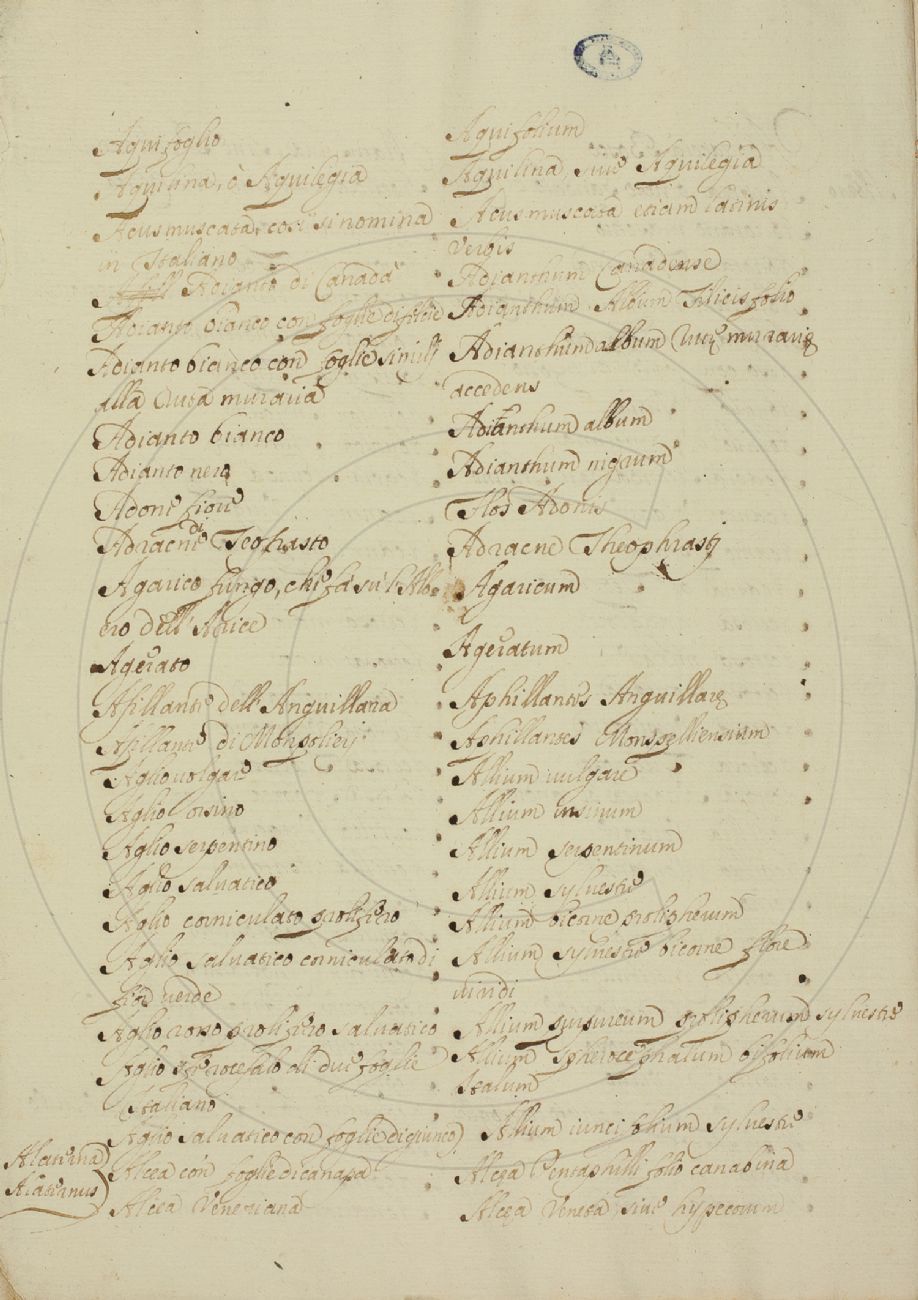 Aquifoglio
Aquilina, ò Aquilegia
Acus muscata, così si nomina
in Italiano
Adianto di Canada
Adianto bianco con foglie di filice
Adianto bianco con foglie simili
alla Ruta muraria
Adianto bianco
Adianto nero
Adone fiore
Adracne di Teofrasto
Agarico fungo, che fà sù l'Albe
ro dell'Arice
Agerato
Afillante dell'Anguillara
Afillante di Monpelieri
Aglio volgare
Aglio orsino
Aglio serpentino
Aglio salvatico
Aglio corniculato prolifero
Aglio salvatico corniculato di
fior verde
Aglio rosso prolifero salvatico
Aglio sferocefalo di due foglie
Italiano
Aglio salvatico con foglie di giunco
Alcea con foglie di canapa
Alcea Veneziana
Alaterna
Alaternus
Aquifolium
Aquilina, sive Aquilegia
Acus muscata etiam latinis
verbis
Adianthum Canadense
Adianthum Album Filicis folio
Adianthum album Rutę murarię
accedens
Adianthum album
Adianthum nigrum
Flos Adonis
Adracne Theophrasti
Agaricum
Ageratum
Aphillantes Anguillarę
Aphillantes Monspelliensium
Allium vulgare
Allium ursinum
Allium serpentinum
Allium sylvestre
Allium bicorne proligherum
Allium sylvestre bicorne flore
viridi
Allium purpureum proligherum sylvestre
Allium Spherocephalum bifolium
Italum
Allium iunci folium sylvestre
Alcea Pentaphilli folio canabina
Alcea Veneta, sive hypecoum